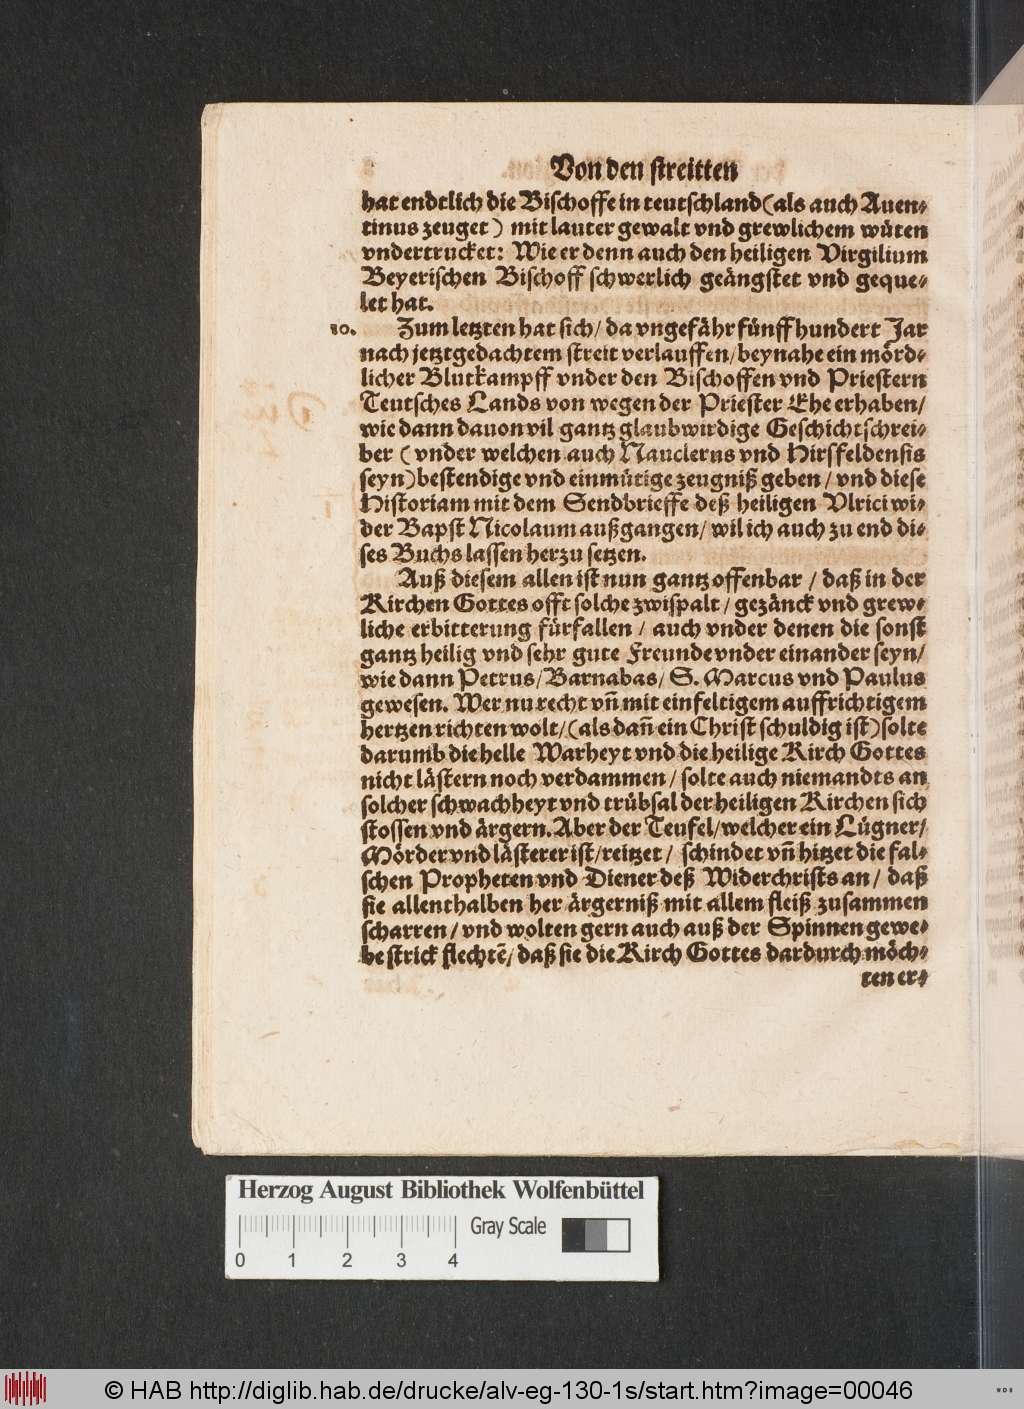 Von den streitten
hat endtlich die Bischoffe in teutschland (als auch Auen-
tinus zeuget) mit lauter gewalt vnd grewlichem wüten
vndertrucket: Wie er denn auch den heiligen Virgilium
Beyerischen Bischoff schwerlich geängstet vnd geque-
let hat.
10. Zum letzten hat sich/ da vngefähr fünff hundert Jar
nach jetztgedachtem streit verlauffen/ beynahe ein mörd-
licher Blutkampff vnder den Bischoffen vnd Priestern
Teutsches Lands von wegen der Priester Ehe erhaben/
wie dann dauon vil gantz glaubwirdige Geschichtschrei-
ber (vnder welchen auch Nauclerus vnd Hirsfeldensis
seyn) bestendige vnd einmütige zeugniß geben/ vnd diese
Historiam mit dem Sendbrieffe deß heiligen Vlrici wi-
der Bapst Nicolaum außgangen/ wil ich auch zu end di-
ses Buchs lassen herzu setzen.
Auß diesem allen ist nun gantz offenbar/ daß in der
Kirchen Gottes offt solche zwispalt/ gezänck vnd grew-
liche erbitterung fürfallen/ auch vnder denen die sonst
gantz heilig vnd sehr gute Freunde vnder einander seyn/
wie dann Petrus/ Barnabas/ S. Marcus vnd Paulus
gewesen. Wer nu recht vñ mit einfeltigem auffrichtigem
hertzen richten wolt/ (als dañ ein Christ schuldig ist) solte
darumb die helle Warheyt vnd die heilige Kirch Gottes
nicht lästern noch verdammen/ solte auch niemandts an
solcher schwachheyt vnd trübsal der heiligen Kirchen sich
stossen vnd ärgern. Aber der Teufel/ welcher ein Lügner/
Mörder vnd lästerer ist/ reitzet/ schindet vñ hitzet die fal-
schen Propheten vnd Diener deß Widerchrists an/ daß
sie allenthalben her ärgerniß mit allem fleiß zusammen
scharren/ vnd wolten gern auch auß der Spinnen gewe-
be strick flechtẽ/ daß sie die Kirch Gottes dardurch möch-
ten er-
Herzog August Bibliothek Wolfenbüttel
Gray Scale
0 1 2 3 4
© HAB http://diglib.hab.de/drucke/alv-eg-130-1s/start.htm?image=00046